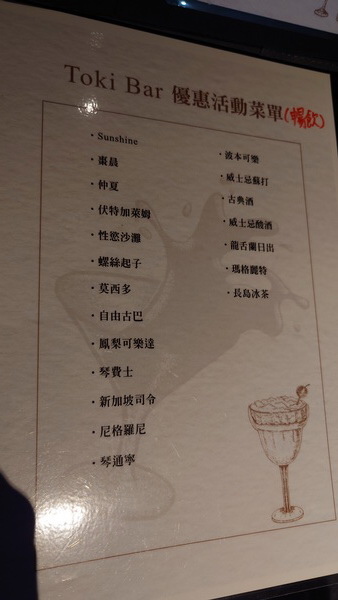 Toki Bar 優惠活動菜單(暢飲)
· Sunshine
· 棗晨
· 仲夏
· 伏特加萊姆
· 性慾沙灘
· 螺絲起子
· 莫西多
· 自由古巴
· 鳳梨可樂達
· 琴費士
· 新加坡司令
· 尼格羅尼
· 琴通寧
· 波本可樂
· 威士忌蘇打
· 古典酒
· 威士忌酸酒
· 龍舌蘭日出
· 瑪格麗特
· 長島冰茶